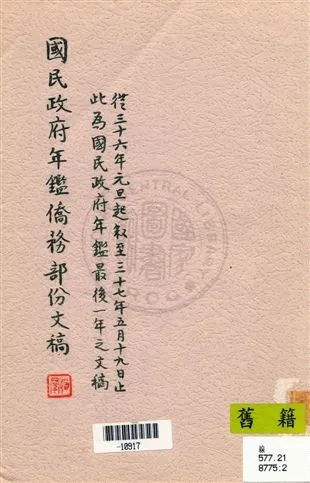 國民政府年鑑僑務部份文稿
從三十六年元旦起敘至三十七年五月十九日止
此為國民政府年鑑最後一年之文稿
CENTRAL
ROC
10917
舊籍
線
577.21
8775:2